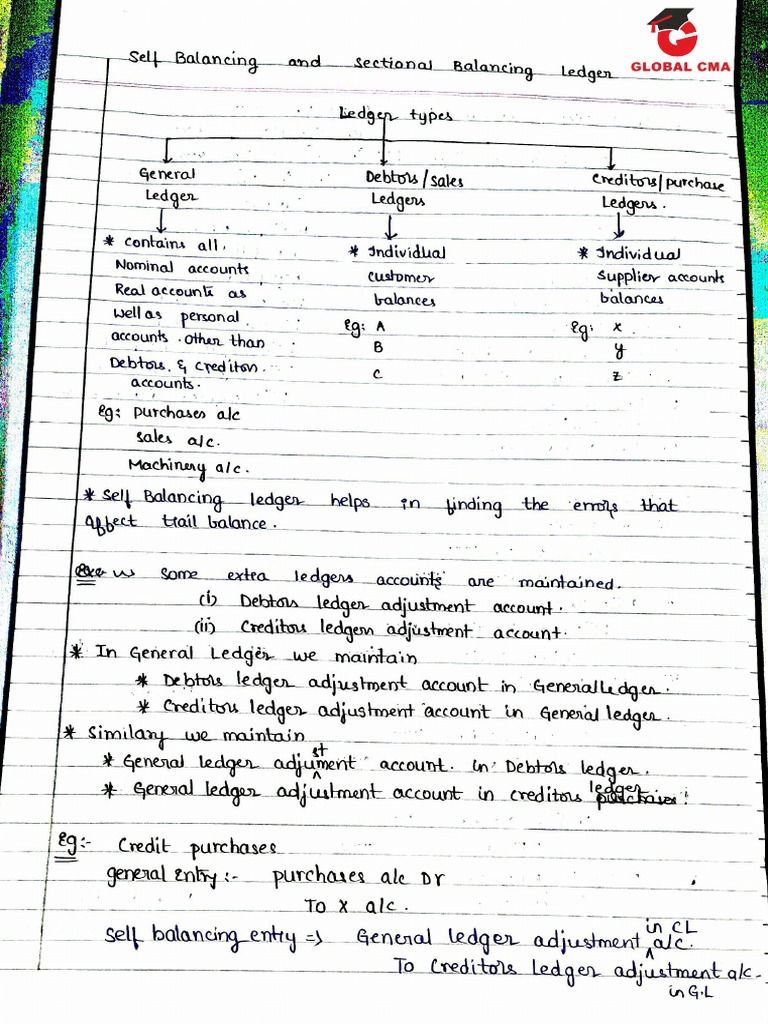 GLOBAL CMA
Self Balancing and Sectional Balancing Ledger
Ledger types
General Ledger
Debtors/sales Ledgers
Creditors/purchase Ledgers.
* contains all
Nominal accounts
Real accounts as
well as personal
accounts other than
Debtors & creditors
accounts.
Eg: purchases a/c
sales a/c.
Machinery a/c.
* Individual
customer
balances
Eg: A
B
C
* Individual
supplier accounts
balances
Eg: x
y
z
* Self Balancing ledger helps in finding the errors that
affect trail balance.
some extra ledgers accounts are maintained.
(i) Debtors ledger adjustment account.
(ii) Creditors ledgers adjustment account.
* In General Ledger we maintain
* Debtors ledger adjustment account in General ledger.
* Creditors ledger adjustment account in General ledger.
* Similary we maintain
* General ledger adjustment account in Debtors ledger.
* General ledger adjustment account in creditors ledger
Eg:- Credit purchases
general Entry:- purchases a/c Dr
To X a/c.
Self balancing entry => General ledger adjustment in CL a/c.
To Creditors Ledger adjustment a/c.
in G.L